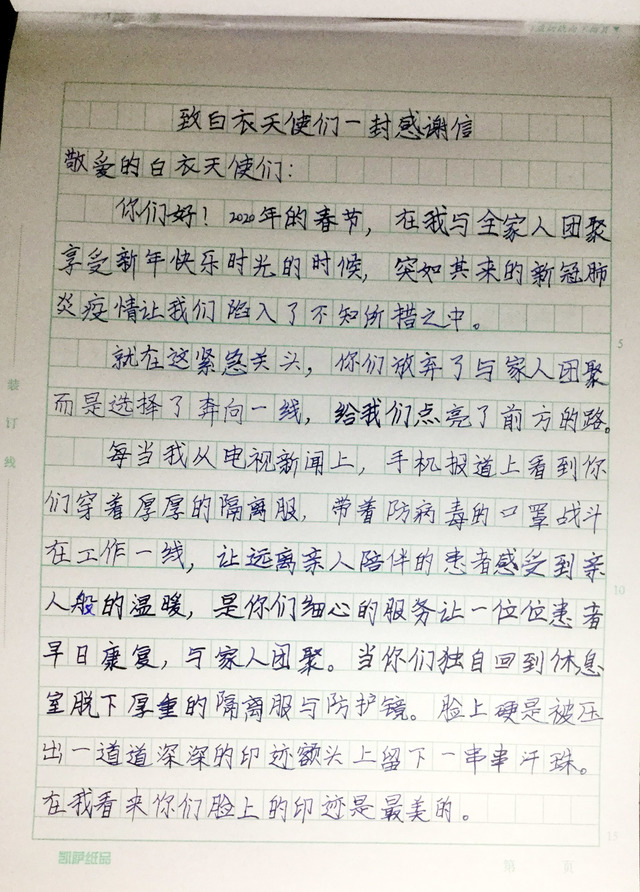 致白衣天使们一封感谢信
敬爱的白衣天使们：
你们好！2020年的春节，在我与全家人团聚
享受新年快乐时光的时候，突如其来的新冠肺
炎疫情让我们陷入了不知所措之中。
5
就在这紧急关头，你们放弃了与家人团聚
而是选择了奔向一线，给我们点亮了前方的路。
每当我从电视新闻上，手机报道上看到你
们穿着厚厚的隔离服，带着防病毒的口罩战斗
在工作一线，让远离亲人陪伴的患者感受到亲
10
人般的温暖，是你们细心的服务让一位位患者
早日康复，与家人团聚。当你们独自回到休息
室脱下厚重的隔离服与防护镜。脸上硬是被压
出一道道深深的印迹额头上留下一串串汗珠。
在我看来你们脸上的印迹是最美的。
15
装订线
凯萨纸品
第 页